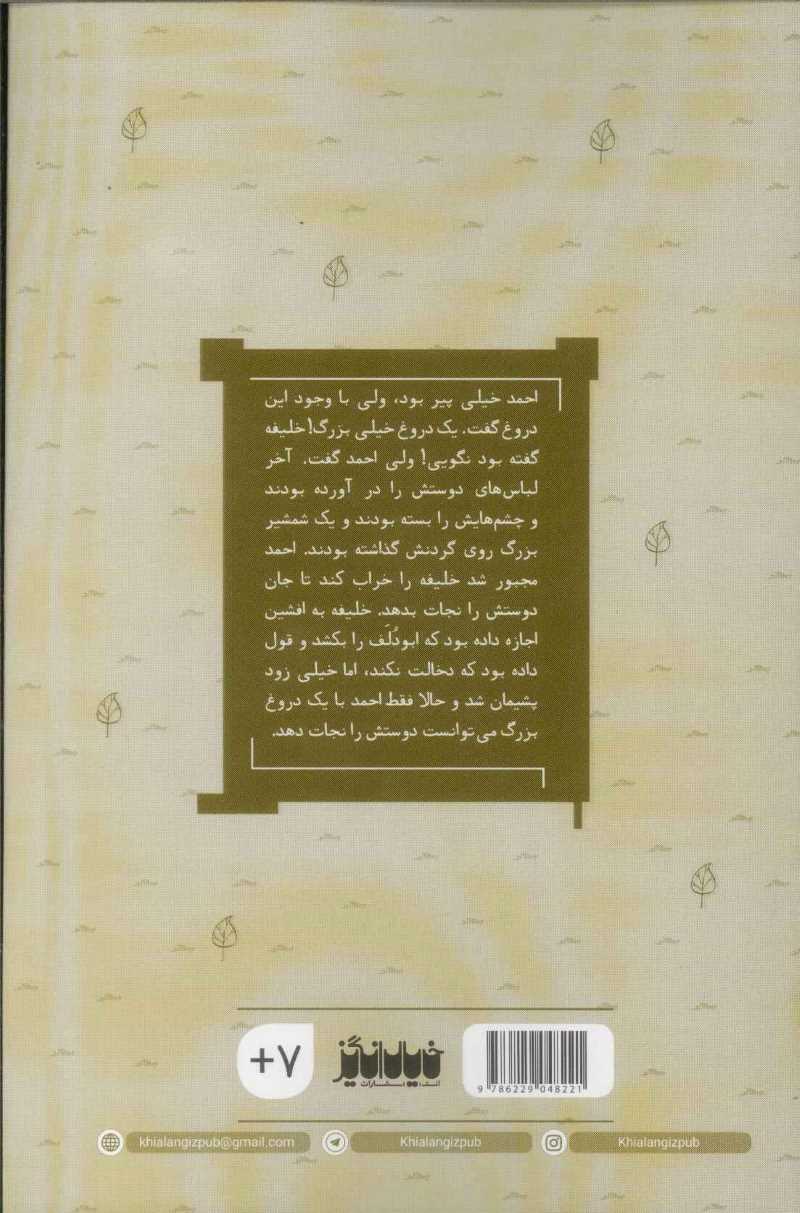 احمد خیلی پیر بود، ولی با وجود این
دروغ گفت. یک دروغ خیلی بزرگ! خلیفه
گفته بود نگویی! ولی احمد گفت. آخر
لباس‌های دوستش را در آورده بودند
و چشم‌هایش را بسته بودند و یک شمشیر
بزرگ روی گردنش گذاشته بودند. احمد
مجبور شد خلیفه را خراب کند تا جان
دوستش را نجات بدهد. خلیفه به افشین
اجازه داده بود که ابودُلَف را بکشد و قول
داده بود که دخالت نکند، اما خیلی زود
پشیمان شد و حالا فقط احمد با یک دروغ
بزرگ می‌توانست دوستش را نجات دهد.
+۷
خیال‌انگیز
انتشارات
9 786229 048221
khialangizpub@gmail.com
Khialangizpub
Khialangizpub